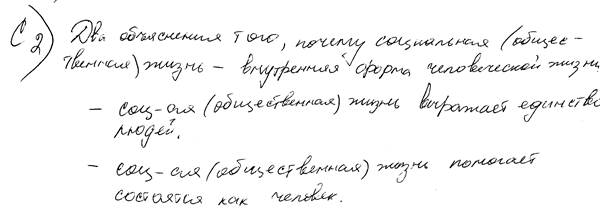 С2) Два объяснения того, почему социальная (общес-
твенная) жизнь – внутренняя форма человеческой жизни
– соц-ая (общественная) жизнь выражает единство
людей.
– соц-ая (общественная) жизнь помогает
состоятся как человек.